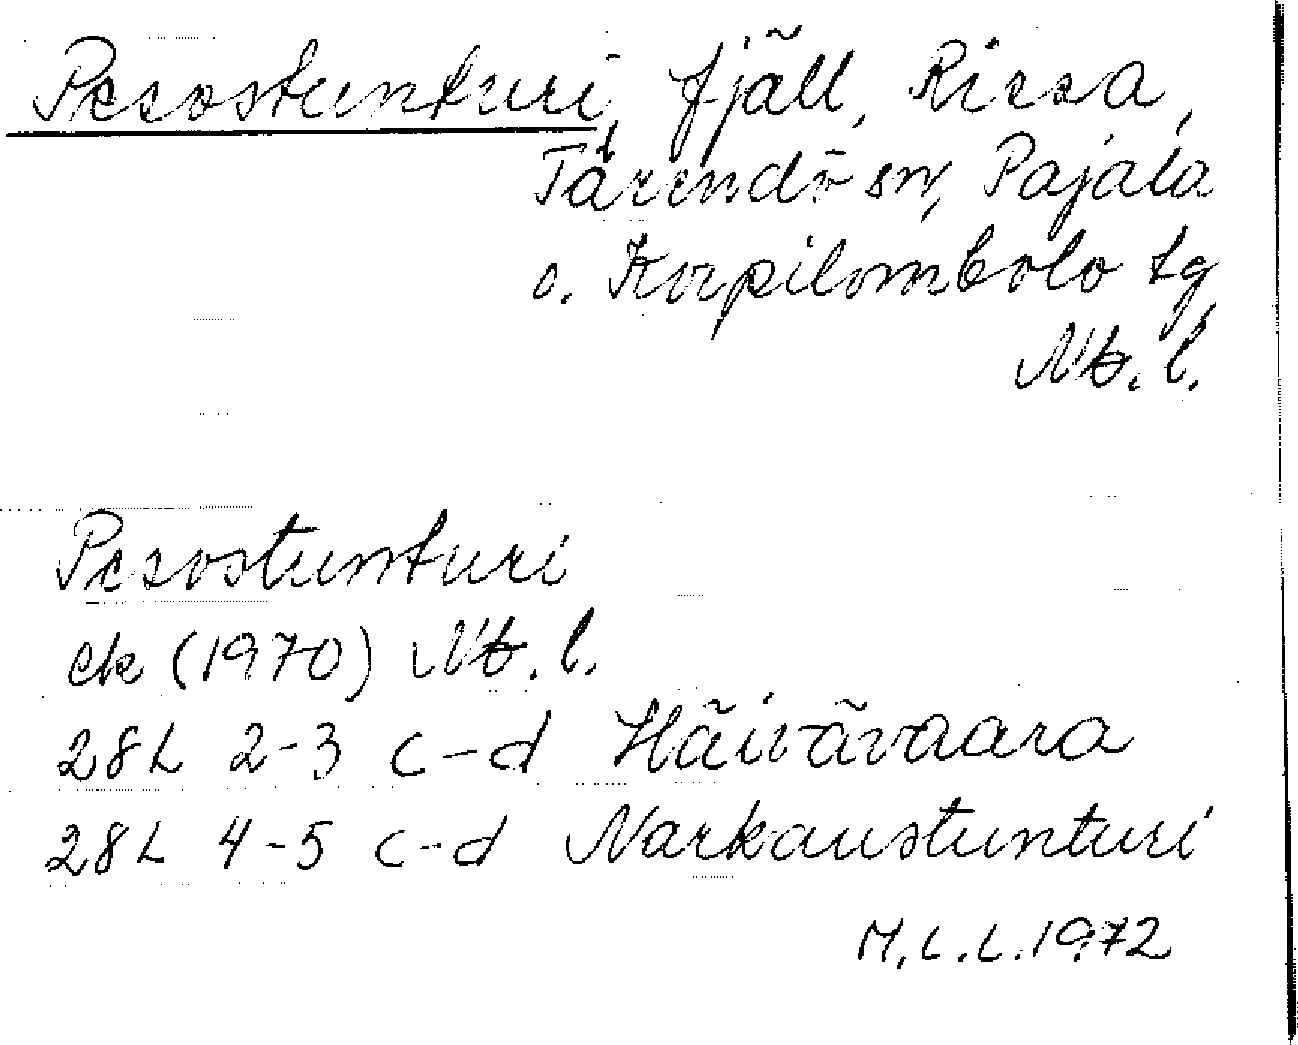 Pesostunturi, fjäll, Rissa,
Tärendö sn, Pajala
o. Korpilombolo tg,
Nb. l.
Pesostunturi
ek (1970) Nb. l.
28L 2-3 c-d Häivävaara
28L 4-5 c-d Narkaustunturi
M.L.L. 1972